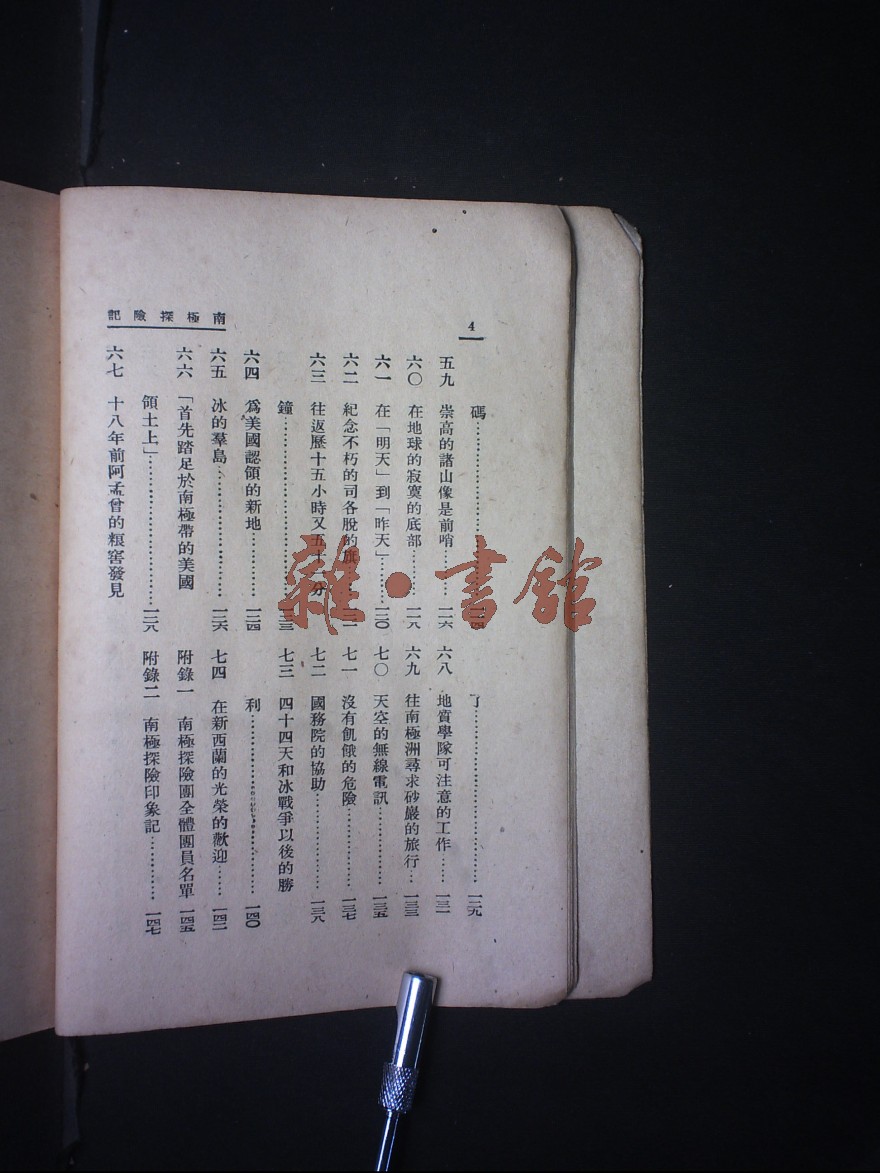 南極探險記
4
碼……………………
五九 崇高的諸山像是前哨……一一六
六〇 在地球的寂寞的底部………一一八
六一 在「明天」到「昨天」……一二〇
六二 紀念不朽的司各脫的旗
六三 往返歷十五小時又五十一分
鐘……………………
六四 爲美國認領的新地…………一二四
六五 冰的羣島……………………一二六
六六 「首先踏足於南極帶的美國
領土上」……………………一二八
六七 十八年前阿孟曾的粮窖發見
了……………………一二九
六八 地質學隊可注意的工作……一三一
六九 往南極洲尋求砂巖的旅行…一三三
七〇 天空的無線電訊……………一三五
七一 沒有飢餓的危險……………一三七
七二 國務院的協助………………一三八
七三 四十四天和冰戰爭以後的勝
利……………………一四〇
七四 在新西蘭的光榮的歡迎……一四二
附錄一 南極探險團全體團員名單 一四五
附錄二 南極探險印象記…………一四七
雜·書館